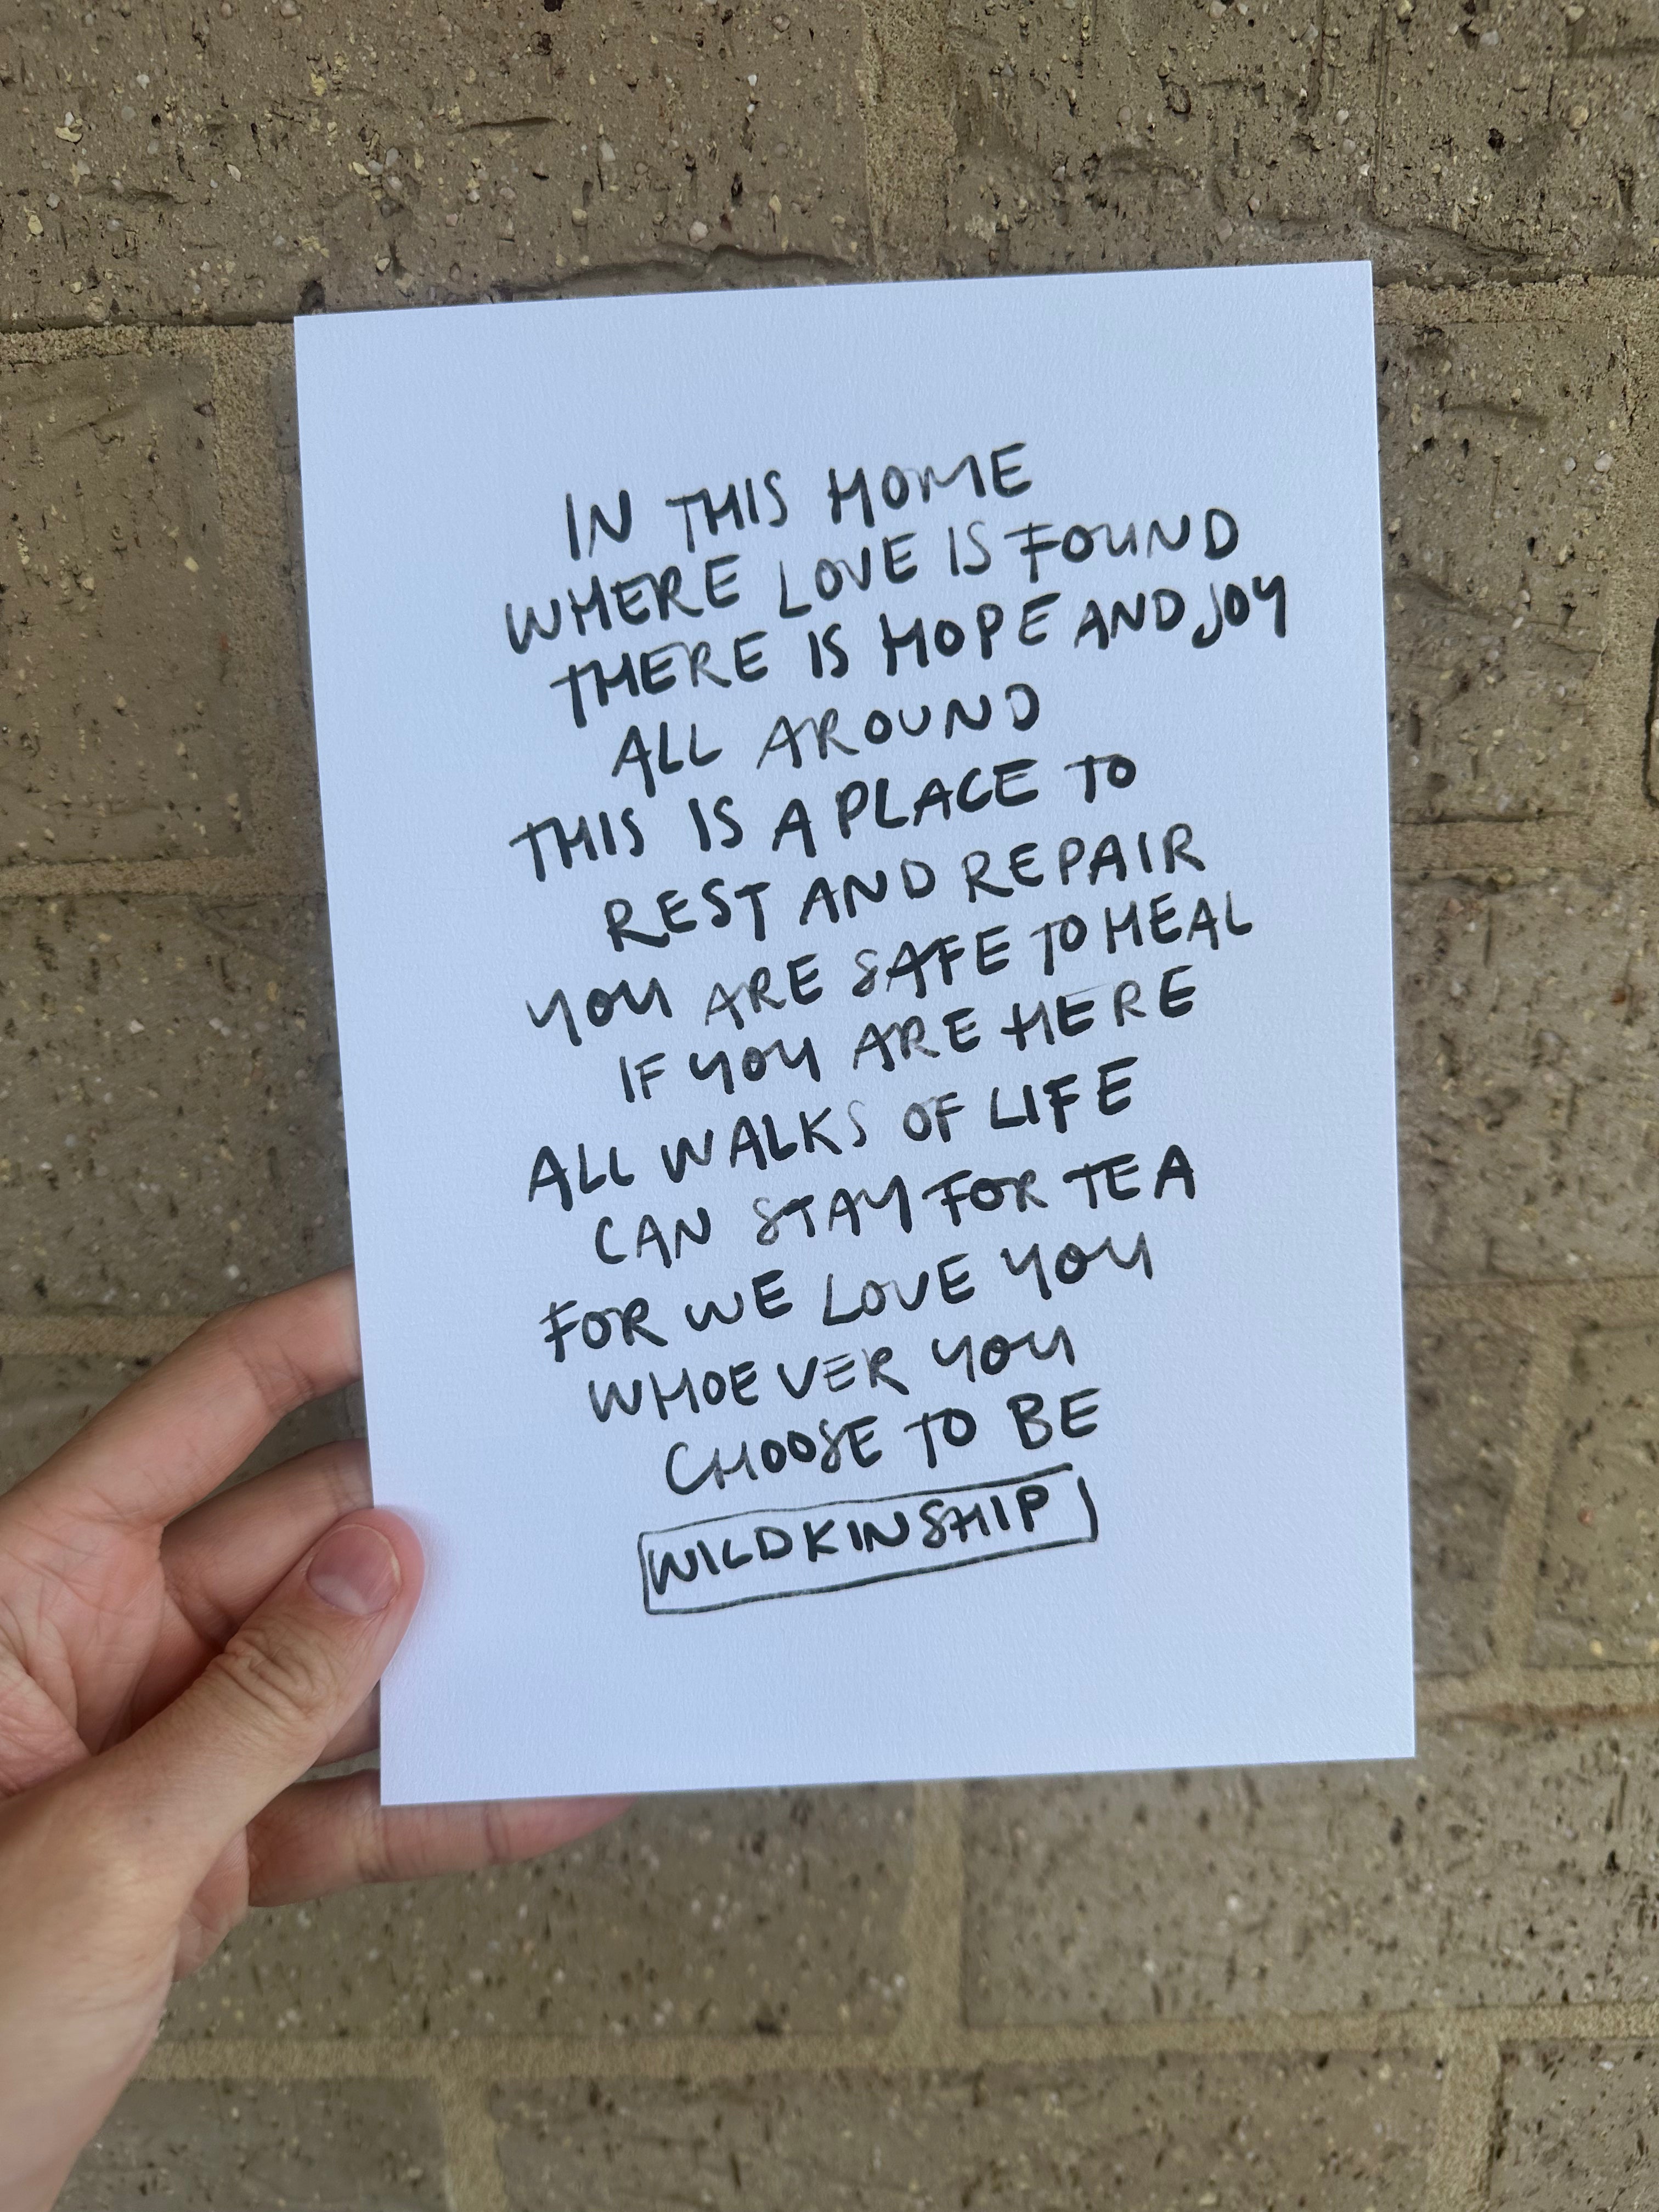 IN THIS HOME
WHERE LOVE IS FOUND
THERE IS HOPE AND JOY
ALL AROUND
THIS IS A PLACE TO
REST AND REPAIR
YOU ARE SAFE TO HEAL
IF YOU ARE HERE
ALL WALKS OF LIFE
CAN STAY FOR TEA
FOR WE LOVE YOU
WHOEVER YOU
CHOOSE TO BE
WILDKINSHIP